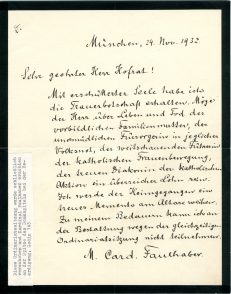 München, 29. Nov. 1932
Sehr geehrter Herr Hofrat!
Mit erschütterter Seele habe ich
die Trauerbotschaft erhalten. Möge
der Herr über Leben und Tod der
vorbildlichen Familienmutter, der
unermüdlichen Fürsorgerin in jeglicher
Volksnot, der weitschauenden Führerin
der katholischen Frauenbewegung,
der treuen Diakonin der katholischen
Aktion ein überreicher Lohn sein.
Ich werde der Heimgegangenen ein
treues Memento am Altare weihen.
Zu meinem Bedauern kann ich an
der Bestattung wegen der gleichzeitigen
Ordinariatssitzung nicht teilnehmen.
M. Card. Faulhaber.